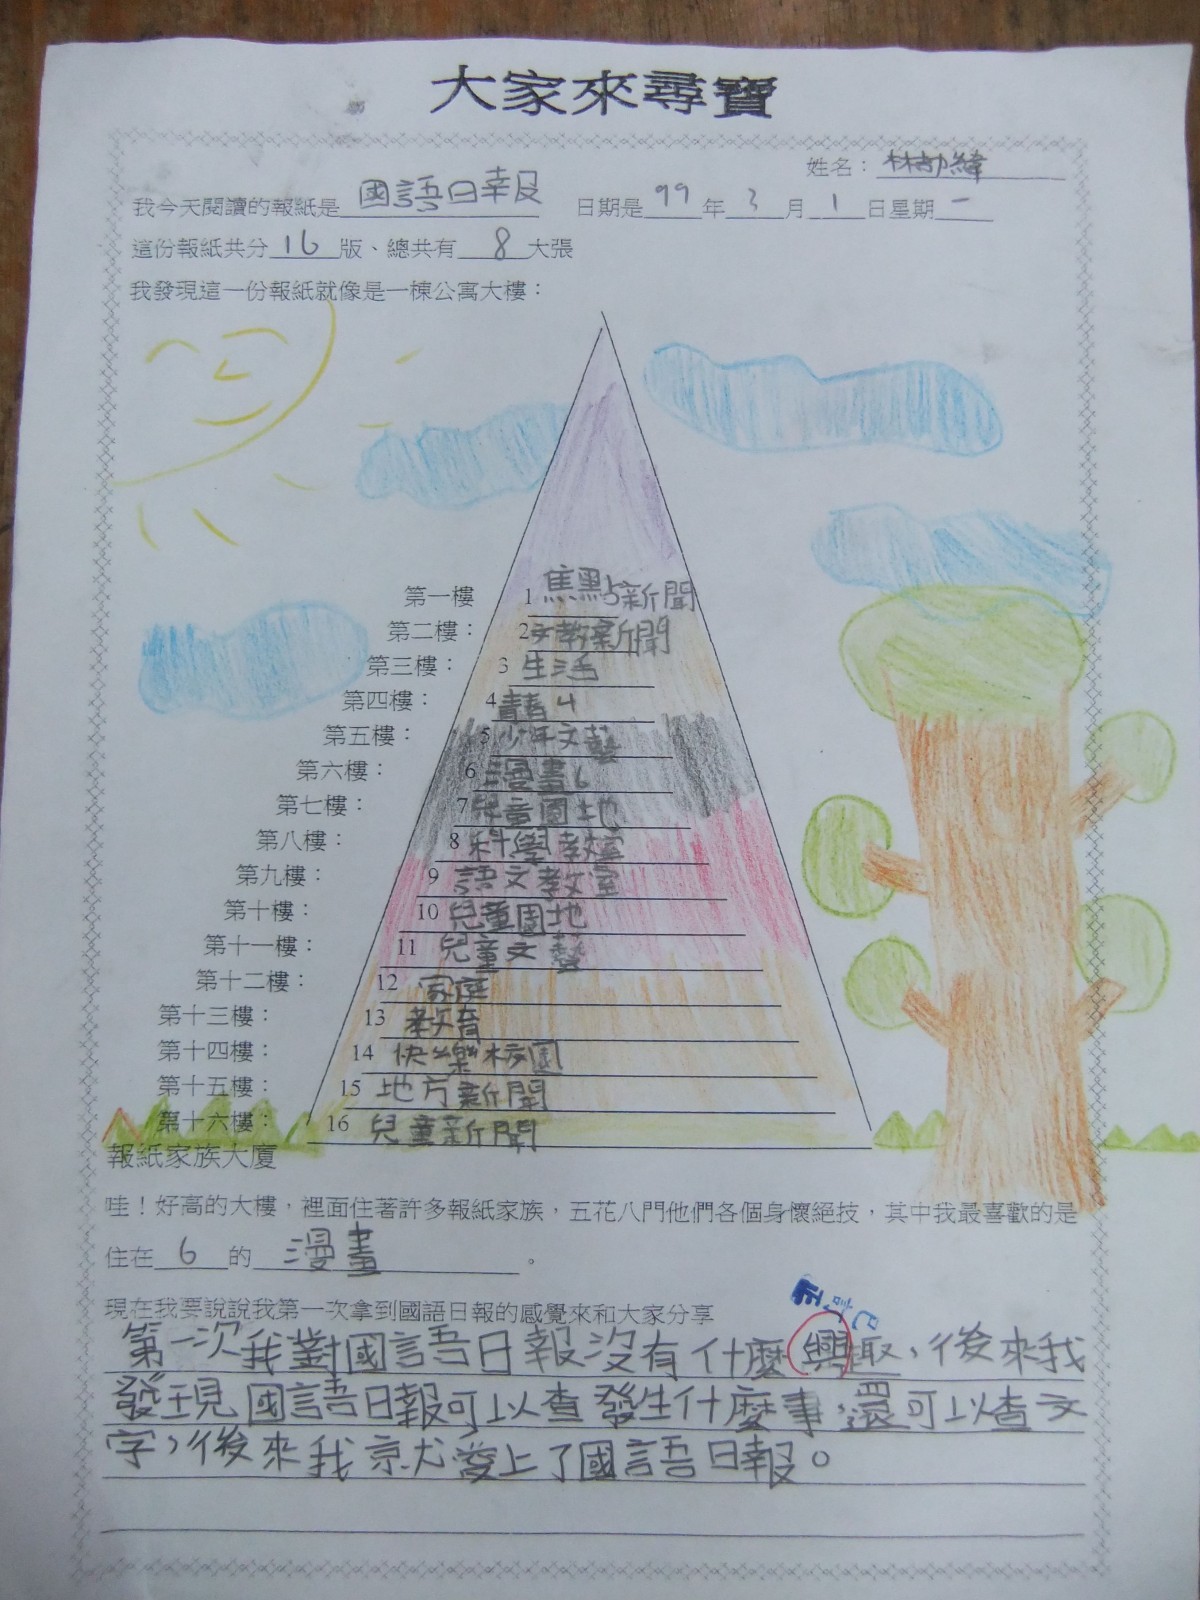 大家來尋寶
姓名：林
我今天閱讀的報紙是國語日報 日期是99年3月1日星期一
這份報紙共分16版、總共有8大張
我發現這一份報紙就像是一棟公寓大樓：
第一樓 1 焦點新聞
第二樓： 2 文教新聞
第三樓： 3 生活
第四樓： 4 青春4
第五樓： 5 少年文藝
第六樓： 6 漫畫6
第七樓： 7 兒童園地
第八樓： 8 科學教室
第九樓： 9 語文教室
第十樓： 10 兒童園地
第十一樓： 11 兒童文藝
第十二樓： 12 家庭
第十三樓： 13 教育
第十四樓： 14 快樂校園
第十五樓： 15 地方新聞
第十六樓： 16 兒童新聞
報紙家族大廈
哇！好高的大樓，裡面住著許多報紙家族，五花八門他們各個身懷絕技，其中我最喜歡的是
住在6的漫畫。
現在我要說說我第一次拿到國語日報的感覺來和大家分享
第一次我對國語日報沒有什麼興趣，後來我
發現國語日報可以查發生什麼事，還可以查文
字，後來我就愛上了國語日報。